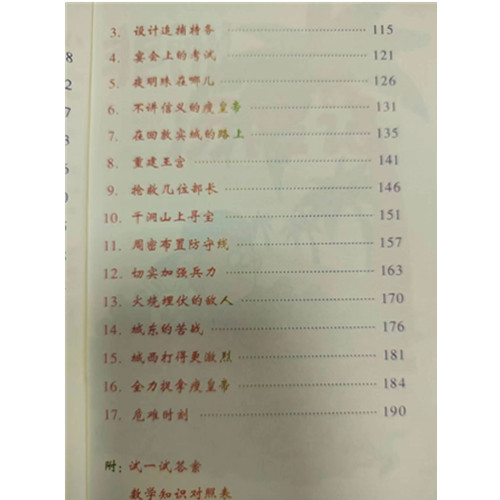 3. 设计逮捕特务 115
4. 宴会上的考试 121
5. 夜明珠在哪儿 126
6. 不讲信义的瘦皇帝 131
7. 在回敦实城的路上 135
8. 重建王宫 141
9. 抢救几位部长 146
10. 千洞山上寻宝 151
11. 周密布置防守线 157
12. 切实加强兵力 163
13. 火烧埋伏的敌人 170
14. 城东的苦战 176
15. 城西打得更激烈 181
16. 全力捉拿瘦皇帝 184
17. 危难时刻 190
附：试一试答案
数学知识对照表